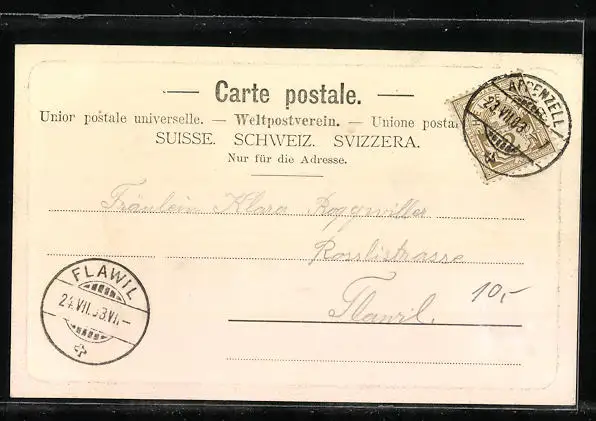 — Carte postale. —
Unior postale universelle. — Weltpostverein. — Unione postal
SUISSE. SCHWEIZ. SVIZZERA.
Nur für die Adresse.
APPENZELL
Fräulein Klara Roggwiller
Rosslistrasse
Flawil.
10,-
FLAWIL
24.VII.03.VII-